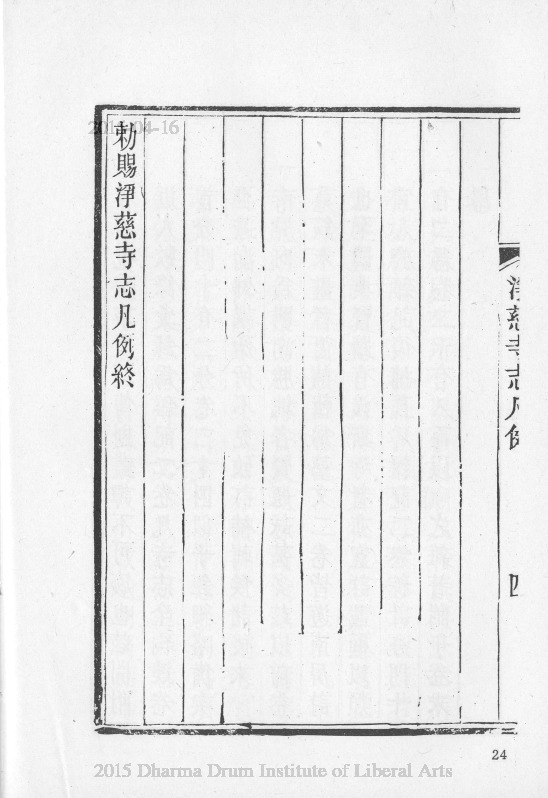 淨慈寺志凡例
四
勅賜淨慈寺志凡例終
24
2015 Dharma Drum Institute of Liberal Arts